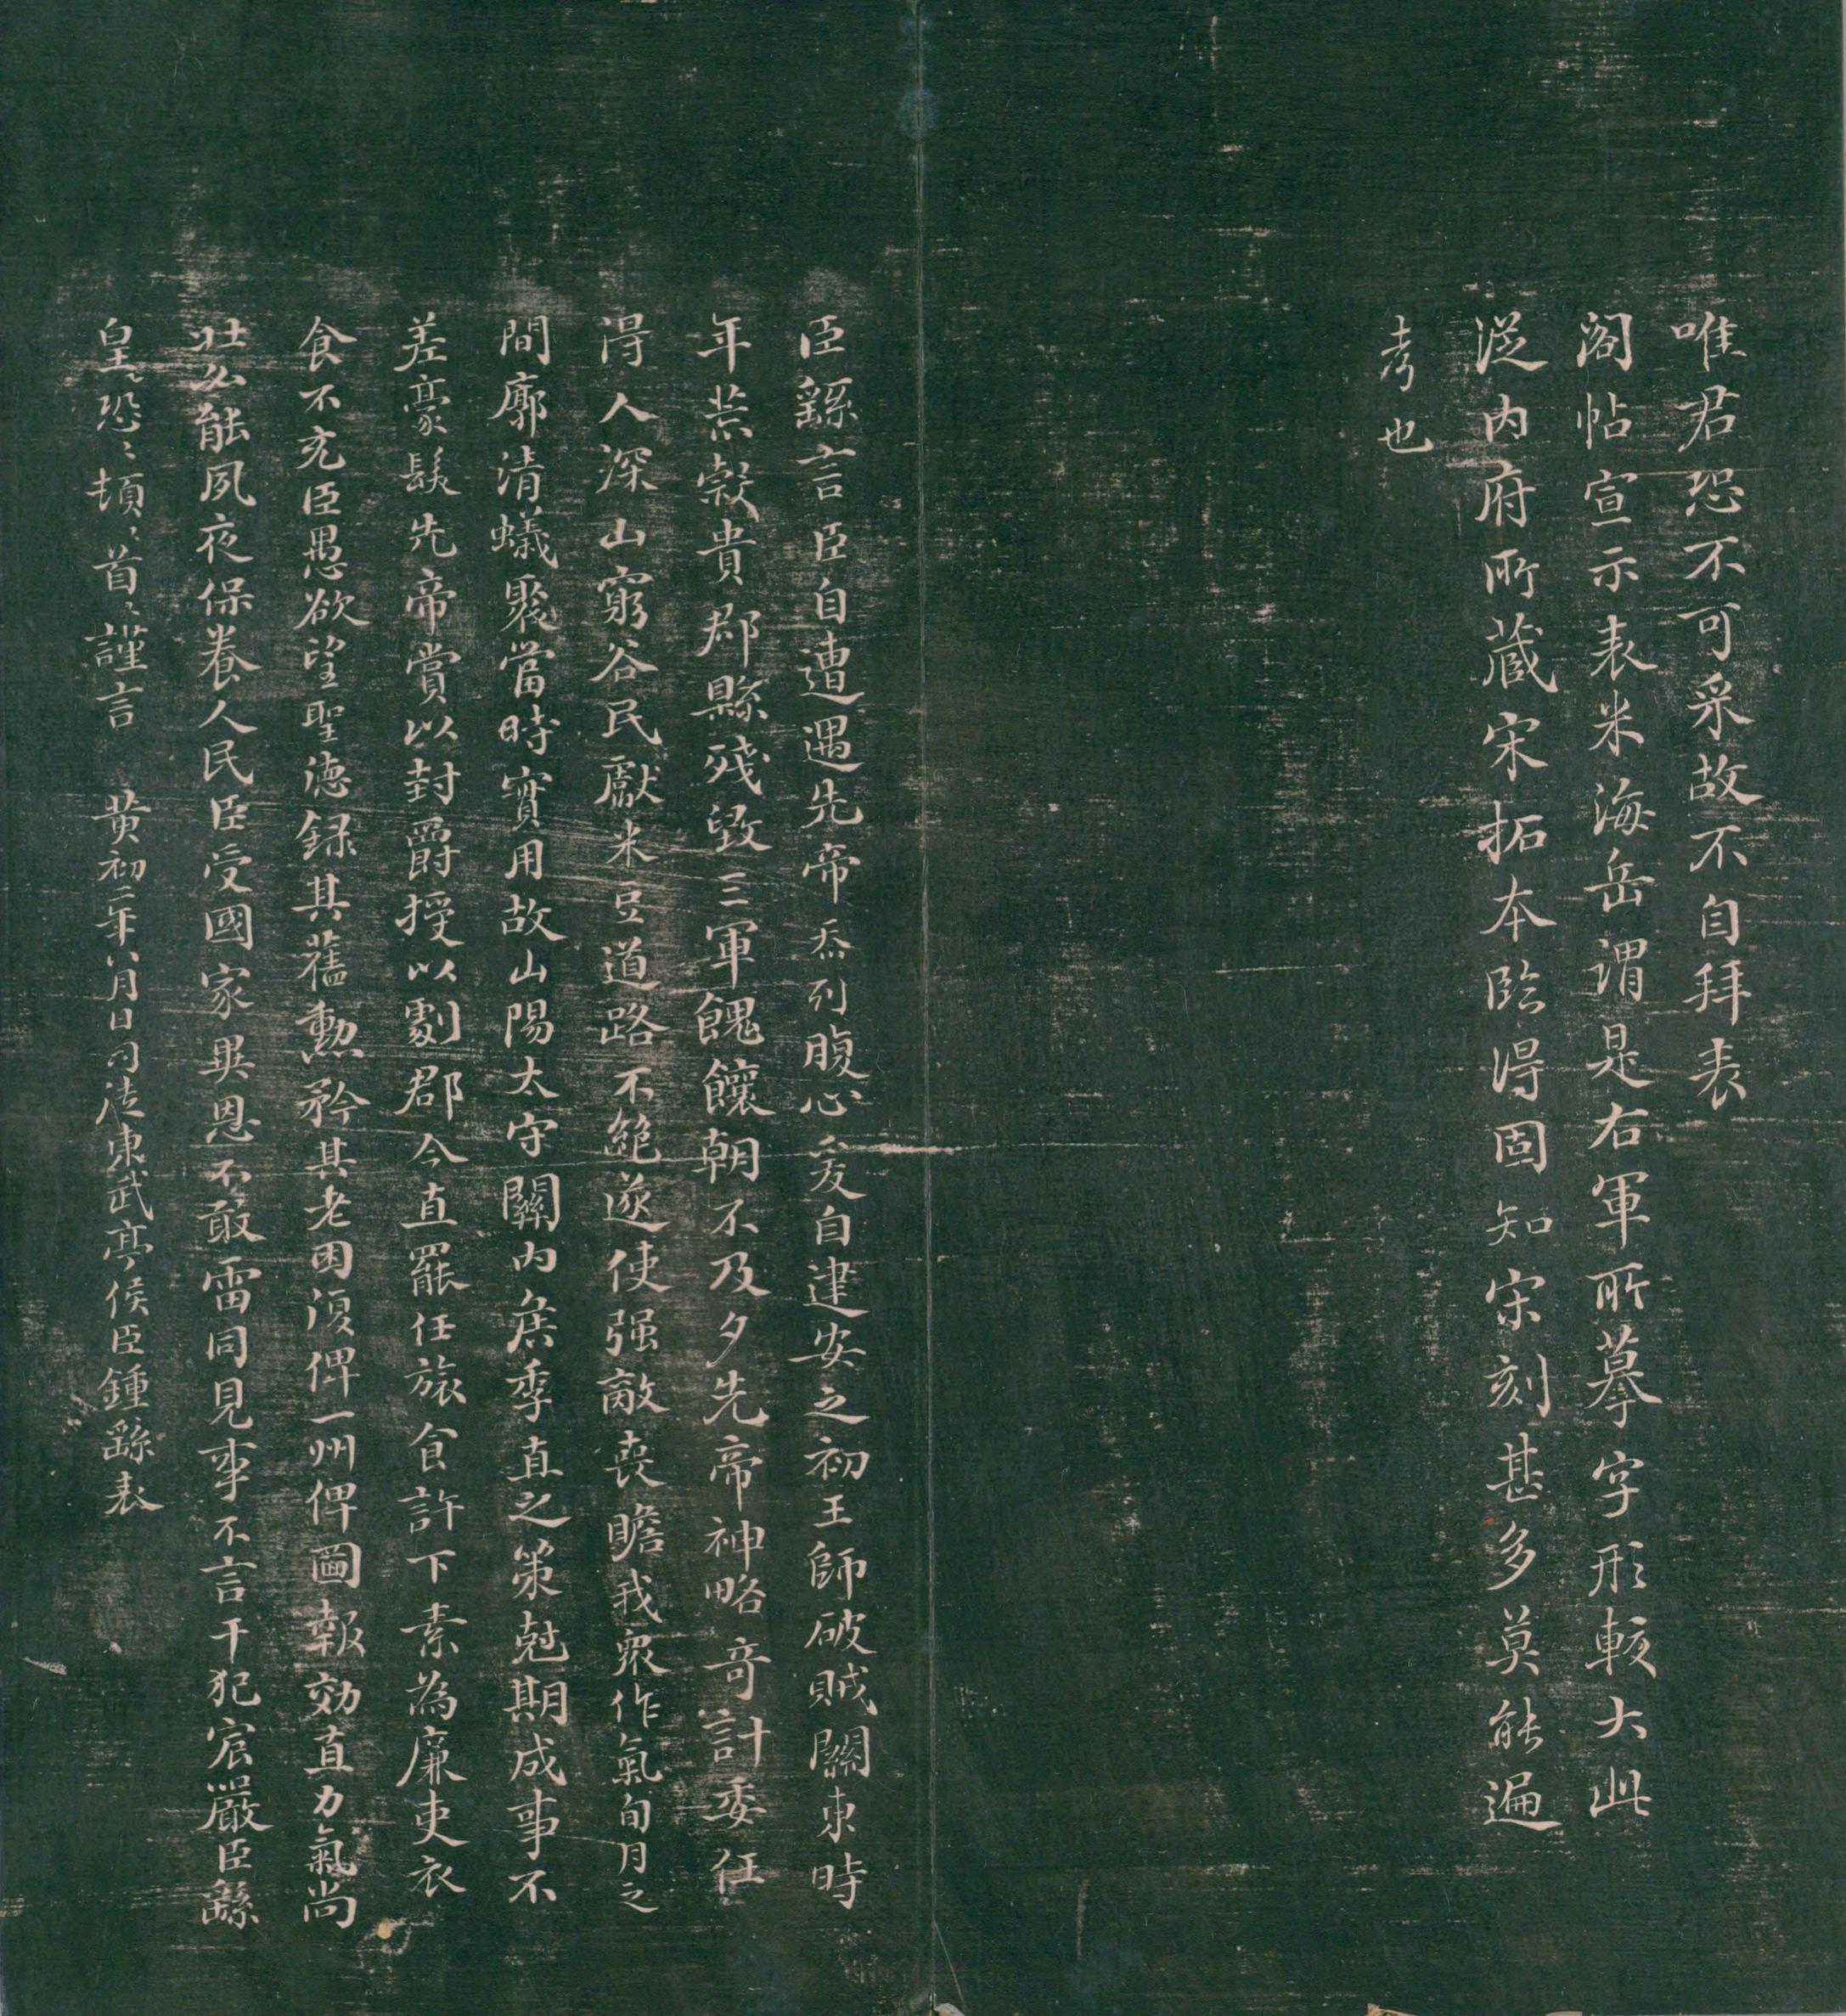 唯君恐不可采故不自拜表
閣帖宣示表米海岳謂是右軍所摹字形較大此
從内府所藏宋拓本臨得固知宋刻甚多莫能遍
考也
臣繇言臣自遭遇先帝忝列腹心爰自建安之初王師破賊關東時
年荒穀貴郡縣殘毀三軍餽饟朝不及夕先帝神略奇計委任
得人深山窮谷民獻米豆道路不絶遂使强敵喪膽我衆作氣旬月之
間廓清蟻聚當時實用故山陽太守關内侯季直之策尅期成事不
差豪髮先帝賞以封爵授以劇郡今直罷任旅食許下素為廉吏衣
食不充臣愚欲望聖德錄其舊勲矜其老困復俾一州俾圖報効直力氣尚
壯必能夙夜保養人民臣受國家異恩不敢雷同見事不言干犯宸嚴臣繇
皇〻恐〻頓〻首〻謹言 黃初二年八月日司徒東武亭侯臣鍾繇表